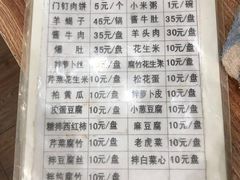 门钉肉饼 5元/个 小米粥 1元/碗
羊蝎子 45元/锅 酱牛肚 35元/盘
酱牛肉 35元/盘 羊头肉 30元/盘
爆肚 35元/盘 花生米 10元/盘
拌萝卜丝 10元/盘 腐竹花生米 10元/盘
芹菜花生米 10元/盘 松花蛋 10元/盘
拍黄瓜 10元/盘 拌萝卜皮 10元/盘
皮蛋豆腐 10元/盘 小葱豆腐 10元/盘
糖拌西红柿 10元/盘 麻豆腐 10元/盘
芹菜腐竹 10元/盘 老虎菜 10元/盘
拌豆腐丝 10元/盘 拌白菜心 10元/盘
拌腐竹 10元/盘